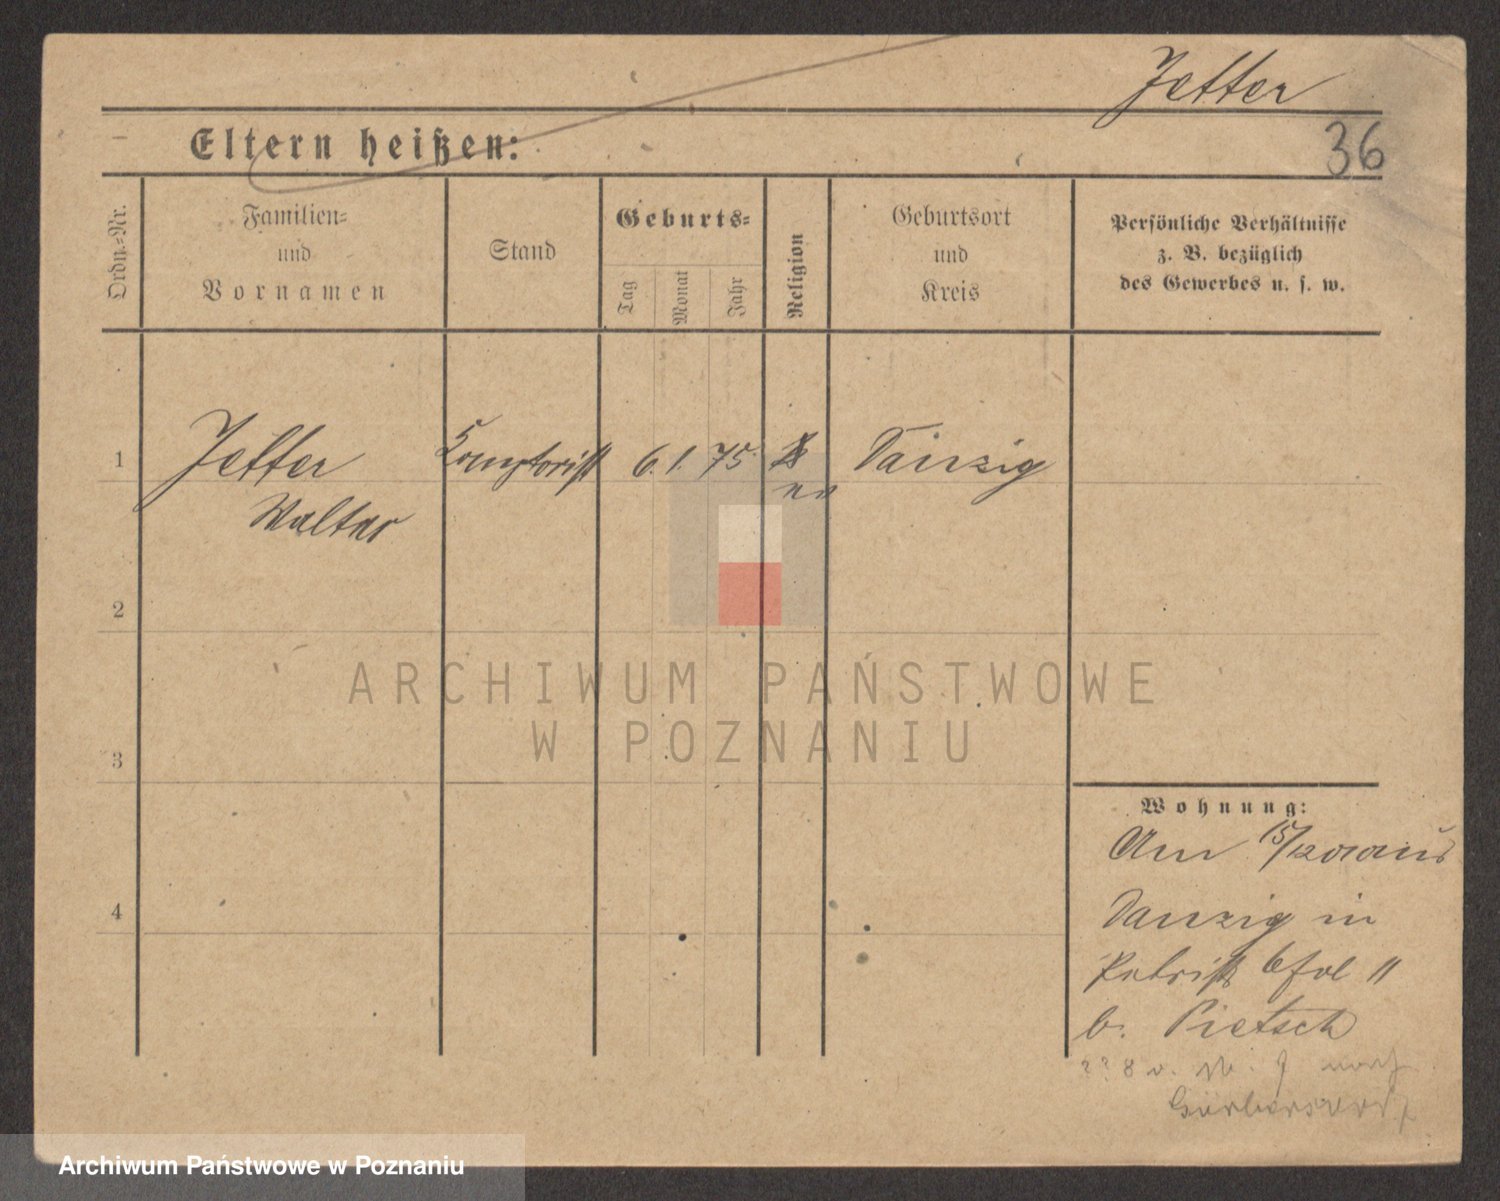 Jetter
Eltern heißen:
36
Ordn.=Nr.
Familien=
und
Vornamen
Stand
Geburts=
Tag
Monat
Jahr
Religion
Geburtsort
und
Kreis
Persönliche Verhältnisse
z. B. bezüglich
des Gewerbes u. s. w.
1
Jetter
Walter
Comptorist
6. 1. 75.
Danzig
2
3
4
ARCHIWUM PAŃSTWOWE
W POZNANIU
Wohnung:
Am 15/12 01 aus
Danzig in
b. Pietsch
Archiwum Państwowe w Poznaniu